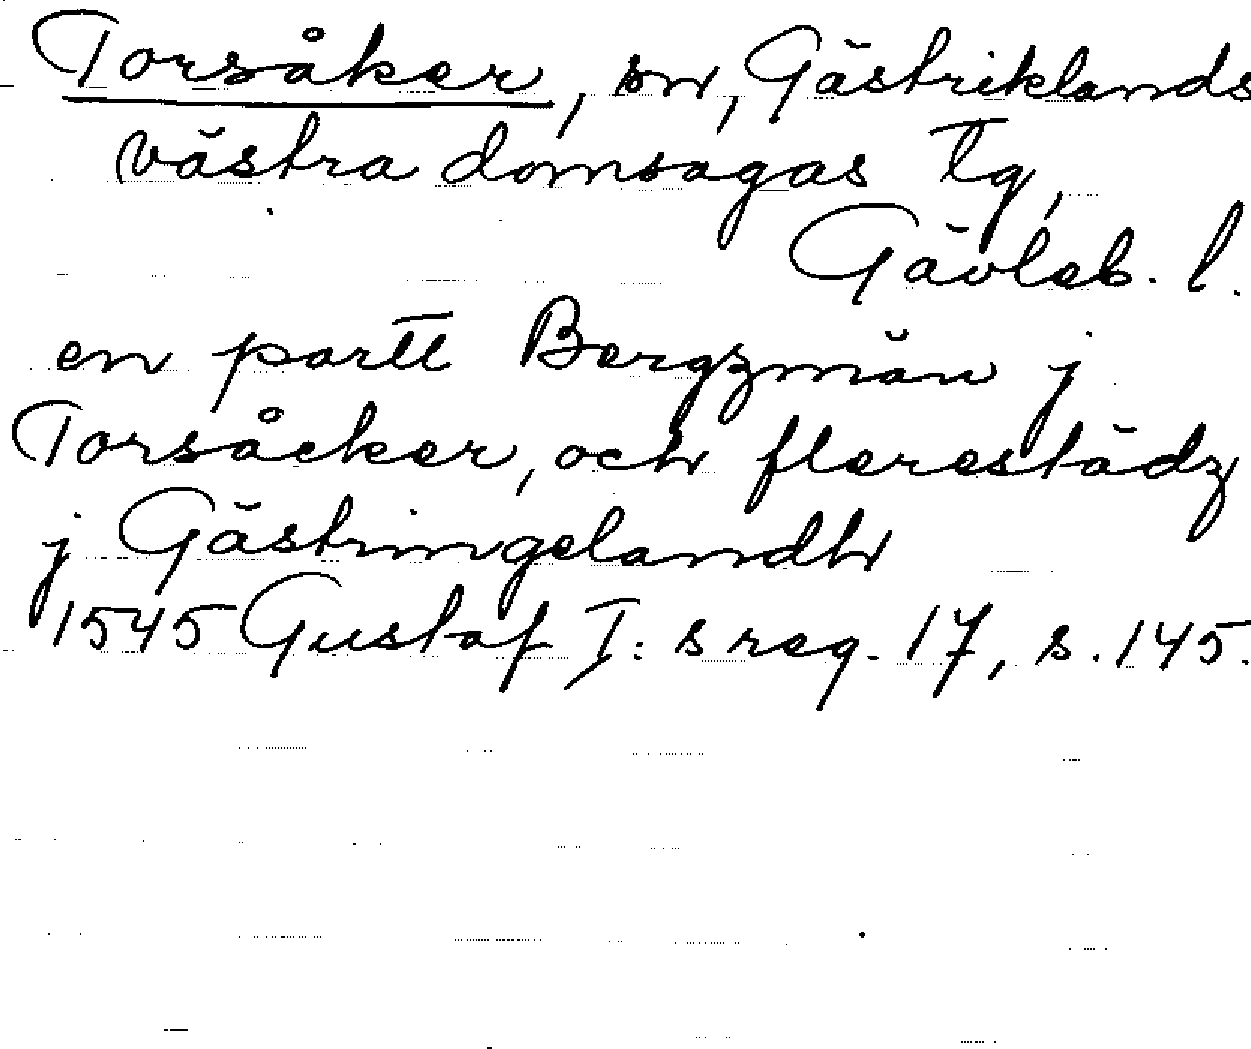 Torsåker, sn, Gästriklands
västra domsagas Tg,
Gävleb. l.
en partt Bergzmän j
Torsåcker, och flerestädz
j Gästringelandh
1545 Gustaf I:s reg. 17, s. 145.